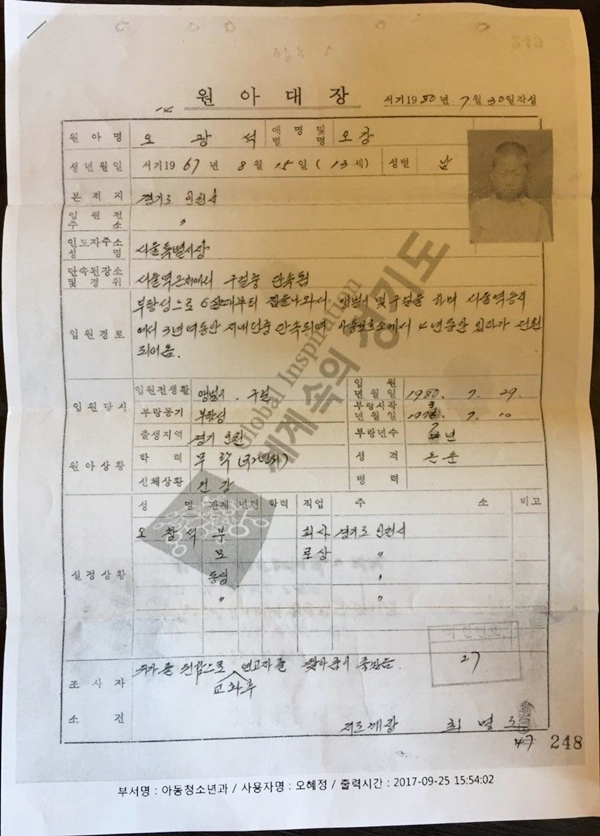 원아대장 서기1980년 7월 30일작성
원아명 오광석 애명및별명 오광
생년월일 서기1967년 8월 15일 (13세) 성별 남
본적지 경기도 인천시
입원전주소 〃
인도자주소성명 서울특별시장
단속된장소및경위 서울역 구걸중 단속됨
입원경로 부랑성으로 6살때부터 서울역등지
에서 3년여동안 지내던중 단속되어 4년동안 있다가 전원
되어옴.
입원당시 입원전생활 구걸 입원년월일 1980. 7. 29.
부랑동기 부랑성 부랑시작년월일 7. 10
출생지역 경기 인천 부랑년수 년
원아상황 학력 무학 성격 온순
신체상황 건강 병력
실정상황 성명 관계 년령 학력 직업 주소 비고
오창석 부 회사 경기도 인천시
모 로상 〃
동생 〃
〃 〃
조사자소견 연고자를
교화후
27
지도계장 최
47 248
세계 속의 경기도
Global Inspiration
부서명 : 아동청소년과 / 사용자명 : 오혜정 / 출력시간 : 2017-09-25 15:54:02